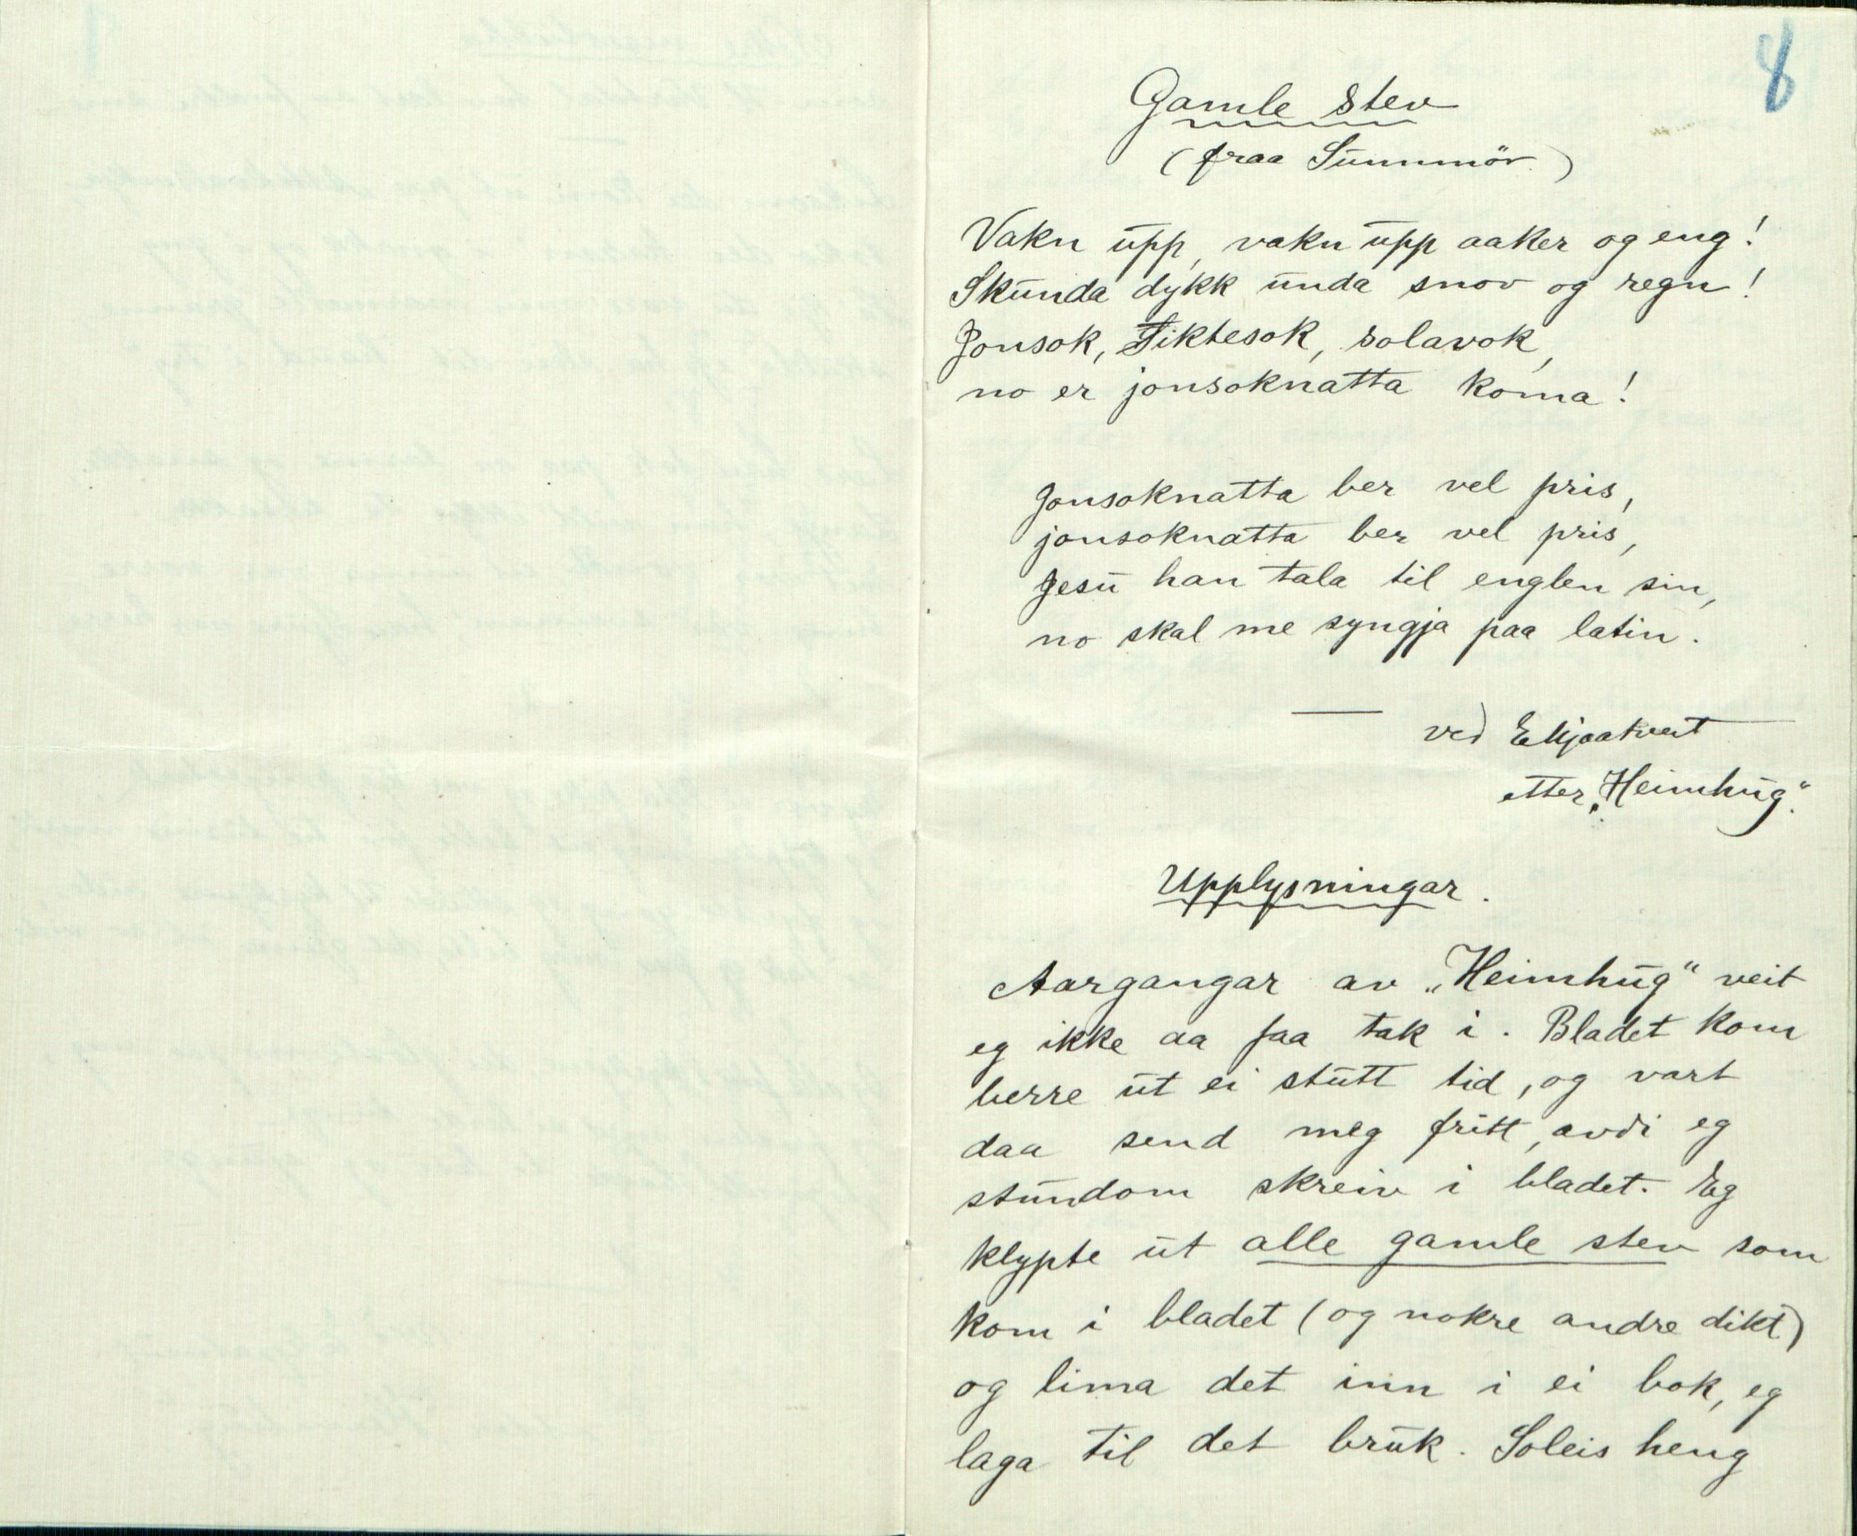 8
Gamle stev
(fraa Sunnmör.)
Vakn upp, vakn upp aaker og eng!
Skunda dykk unda snov og regn!
Jonsok, Tiktesok, solavok,
no er jonsoknatta koma!
Jonsoknatta ber vel pris,
jonsoknatta ber vel pris,
Jesu han tala til englen sin,
no skal me syngja paa latin.
— ved E Mjaatveit
etter „Heimhug“.
Upplysningar.
Aargangar av „Heimhug“ veit
eg ikke aa faa tak i. Bladet kom
berre ut ei stutt tid, og vart
daa send meg fritt, avdi eg
stundom skreiv i bladet. Eg
klypte ut alle gamle stev som
kom i bladet (og nokre andre dikt)
og lima det inn i ei bok, eg
laga til det bruk. Soleis heng